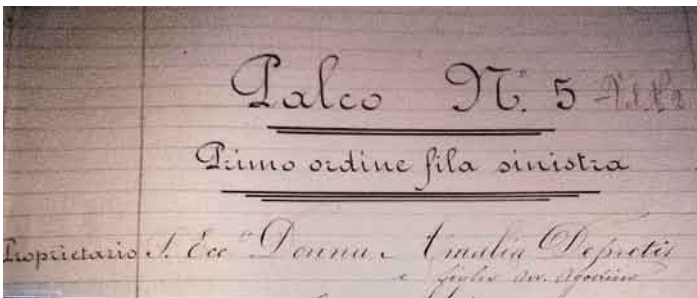 Palco N. 5
Primo ordine fila sinistra
Proprietario S. Ecc. Donna Amalia Depretis
e figlio Avv. Agostino